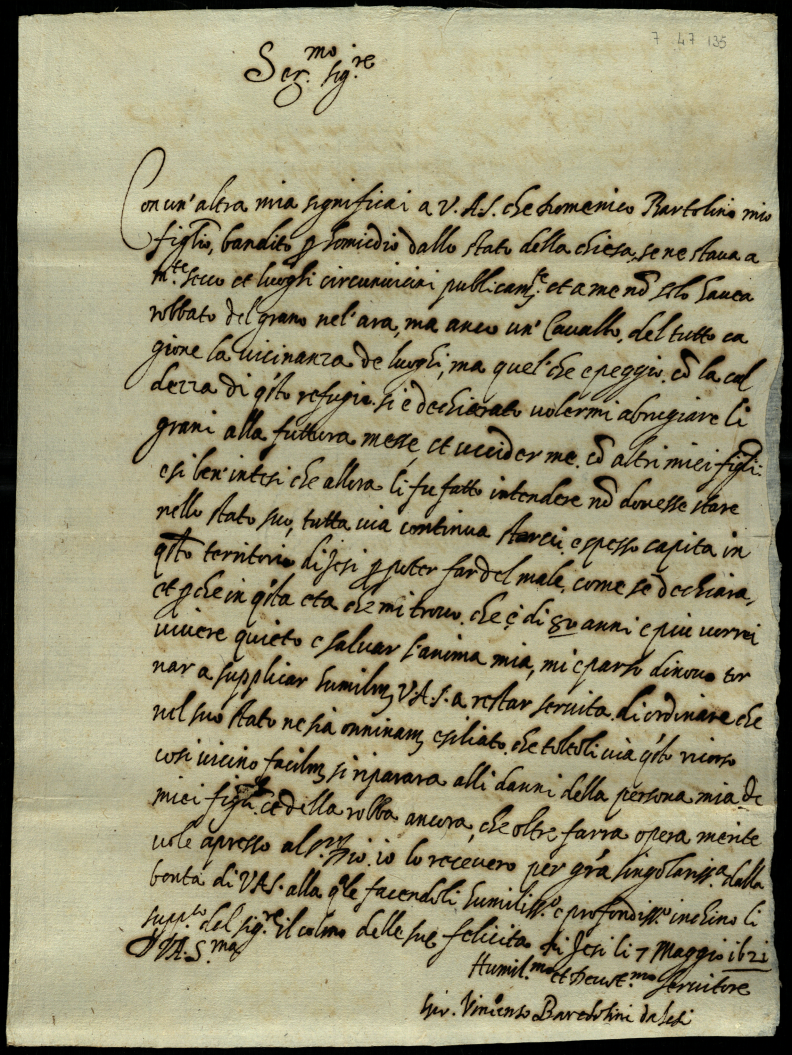 7 47 135
Ser.mo sig.re
Con un' altra mia significai a V.A.S. che Domenico Bartolino mio
figlio, bandito p homicidio dallo stato della chiesa, se ne staua a
m.te secco et luoghi circunuicini publicam.te et a me nõ solo hauea
robbato del grano nel' ara, ma anco un' Cauallo, del tutto ca
gione la uicinanza de luoghi, ma quel' che è peggio, cõ la cal
dezza di q.sto refugio si è dechiarato uolermi abrugiare li
grani alla futtura messe, et uccider me cõ altri miei figli:
e si ben' intesi che allora li fu fatto intendere nõ douesse stare
nello stato suo, tutta uia continua starci, e spesso capita in
q.sto territorio di Jesi p poter far del male, come se dechiara,
et p che in q.sta eta che mi trouo, che è di 80 anni e piu uorrei
uiuere quieto e saluar l'anima mia, mi è parso di nouo tor
nar a supplicar humilm V.A.S. a restar seruita di ordinare che
nel suo stato ne sia onninam esiliato, che toltoli uia q.sto ricorso
cosi uicino facilm si riparara alli danni della persona mia de
miei figli, et della robba ancora, che oltre farra opera merite
uole apresso al S. Dio, io lo receuero per gra singolariss.a dalla
bontà di V.A.S. alla q.le facendoli humiliss.o e profondiss.o inchino li
supp.co del sig.re il colmo delle sue felicita di Jesi li 7 Maggio 1621
D V.A.S.ma
Humil.mo et Deuot.mo seruitore
Vincenzo Bartolini da Jesi